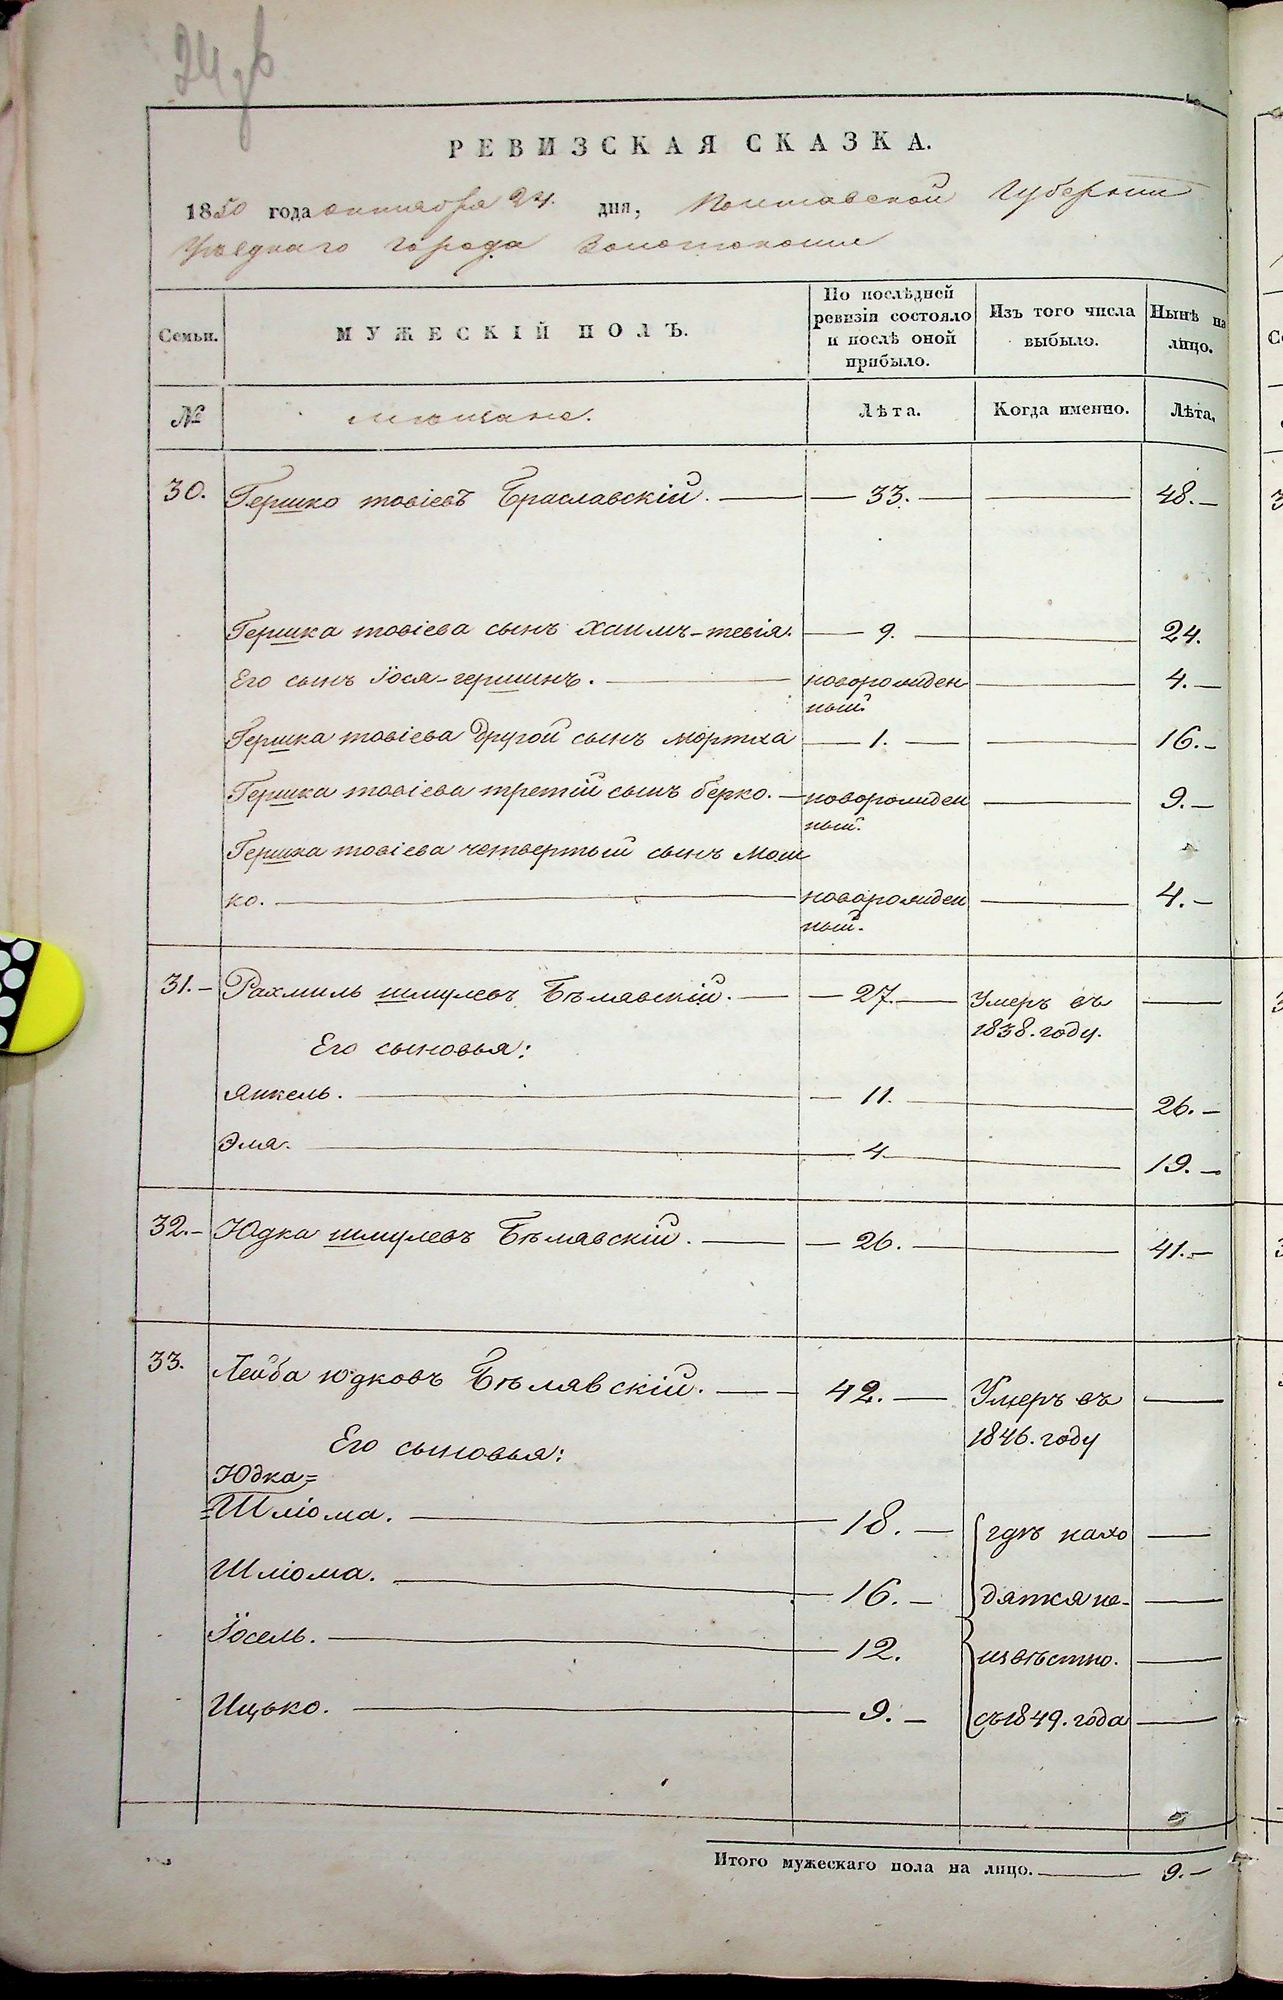 РЕВИЗСКАЯ СКАЗКА.
1850 года октября 24. дня, Полтавской Губернии
Уѣзднаго города Золотоноши
Семьи.
МУЖЕСКІЙ ПОЛЪ.
По послѣдней ревизіи состояло и послѣ оной прибыло.
Изъ того числа выбыло.
Нынѣ на лицо.
№ мѣщане. Лѣта. Когда именно. Лѣта.
30. Гершко товіевъ Браславскій. — 33. — 48. —
Гершка товіева сынъ Хаимъ-тевія. — 9. — 24.
Его сынъ Іося-гершинъ. — новорожден — 4. —
ный.
Гершка товіева другой сынъ мортха — 1. — 16. -
Гершка товіева третій сынъ берко. — новорожден — 9. —
ный.
Гершка товіева четвертый сынъ Мош
ко. — новорожден — 4. —
ный.
31. — Рахмиль шмулевъ Бѣлявскій. — 27. — Умеръ въ —
1838. году.
Его сыновья:
Янкель. — 11. — 26. —
Эля. — 4 — 19. —
32. — Юдка шмулевъ Бѣлявскій. — 26. — 41. —
33. Лейба юдковъ Бѣлявскій. — 42. — Умеръ въ —
1846. году
Его сыновья:
Юдка=
=Шліома. — 18. — гдѣ нахо —
Шліома. — 16. — дятся не- —
Іосель. — 12. извѣстно. —
Ицько. — 9. — съ 1849. года —
Итого мужескаго пола на лицо. — 9. —